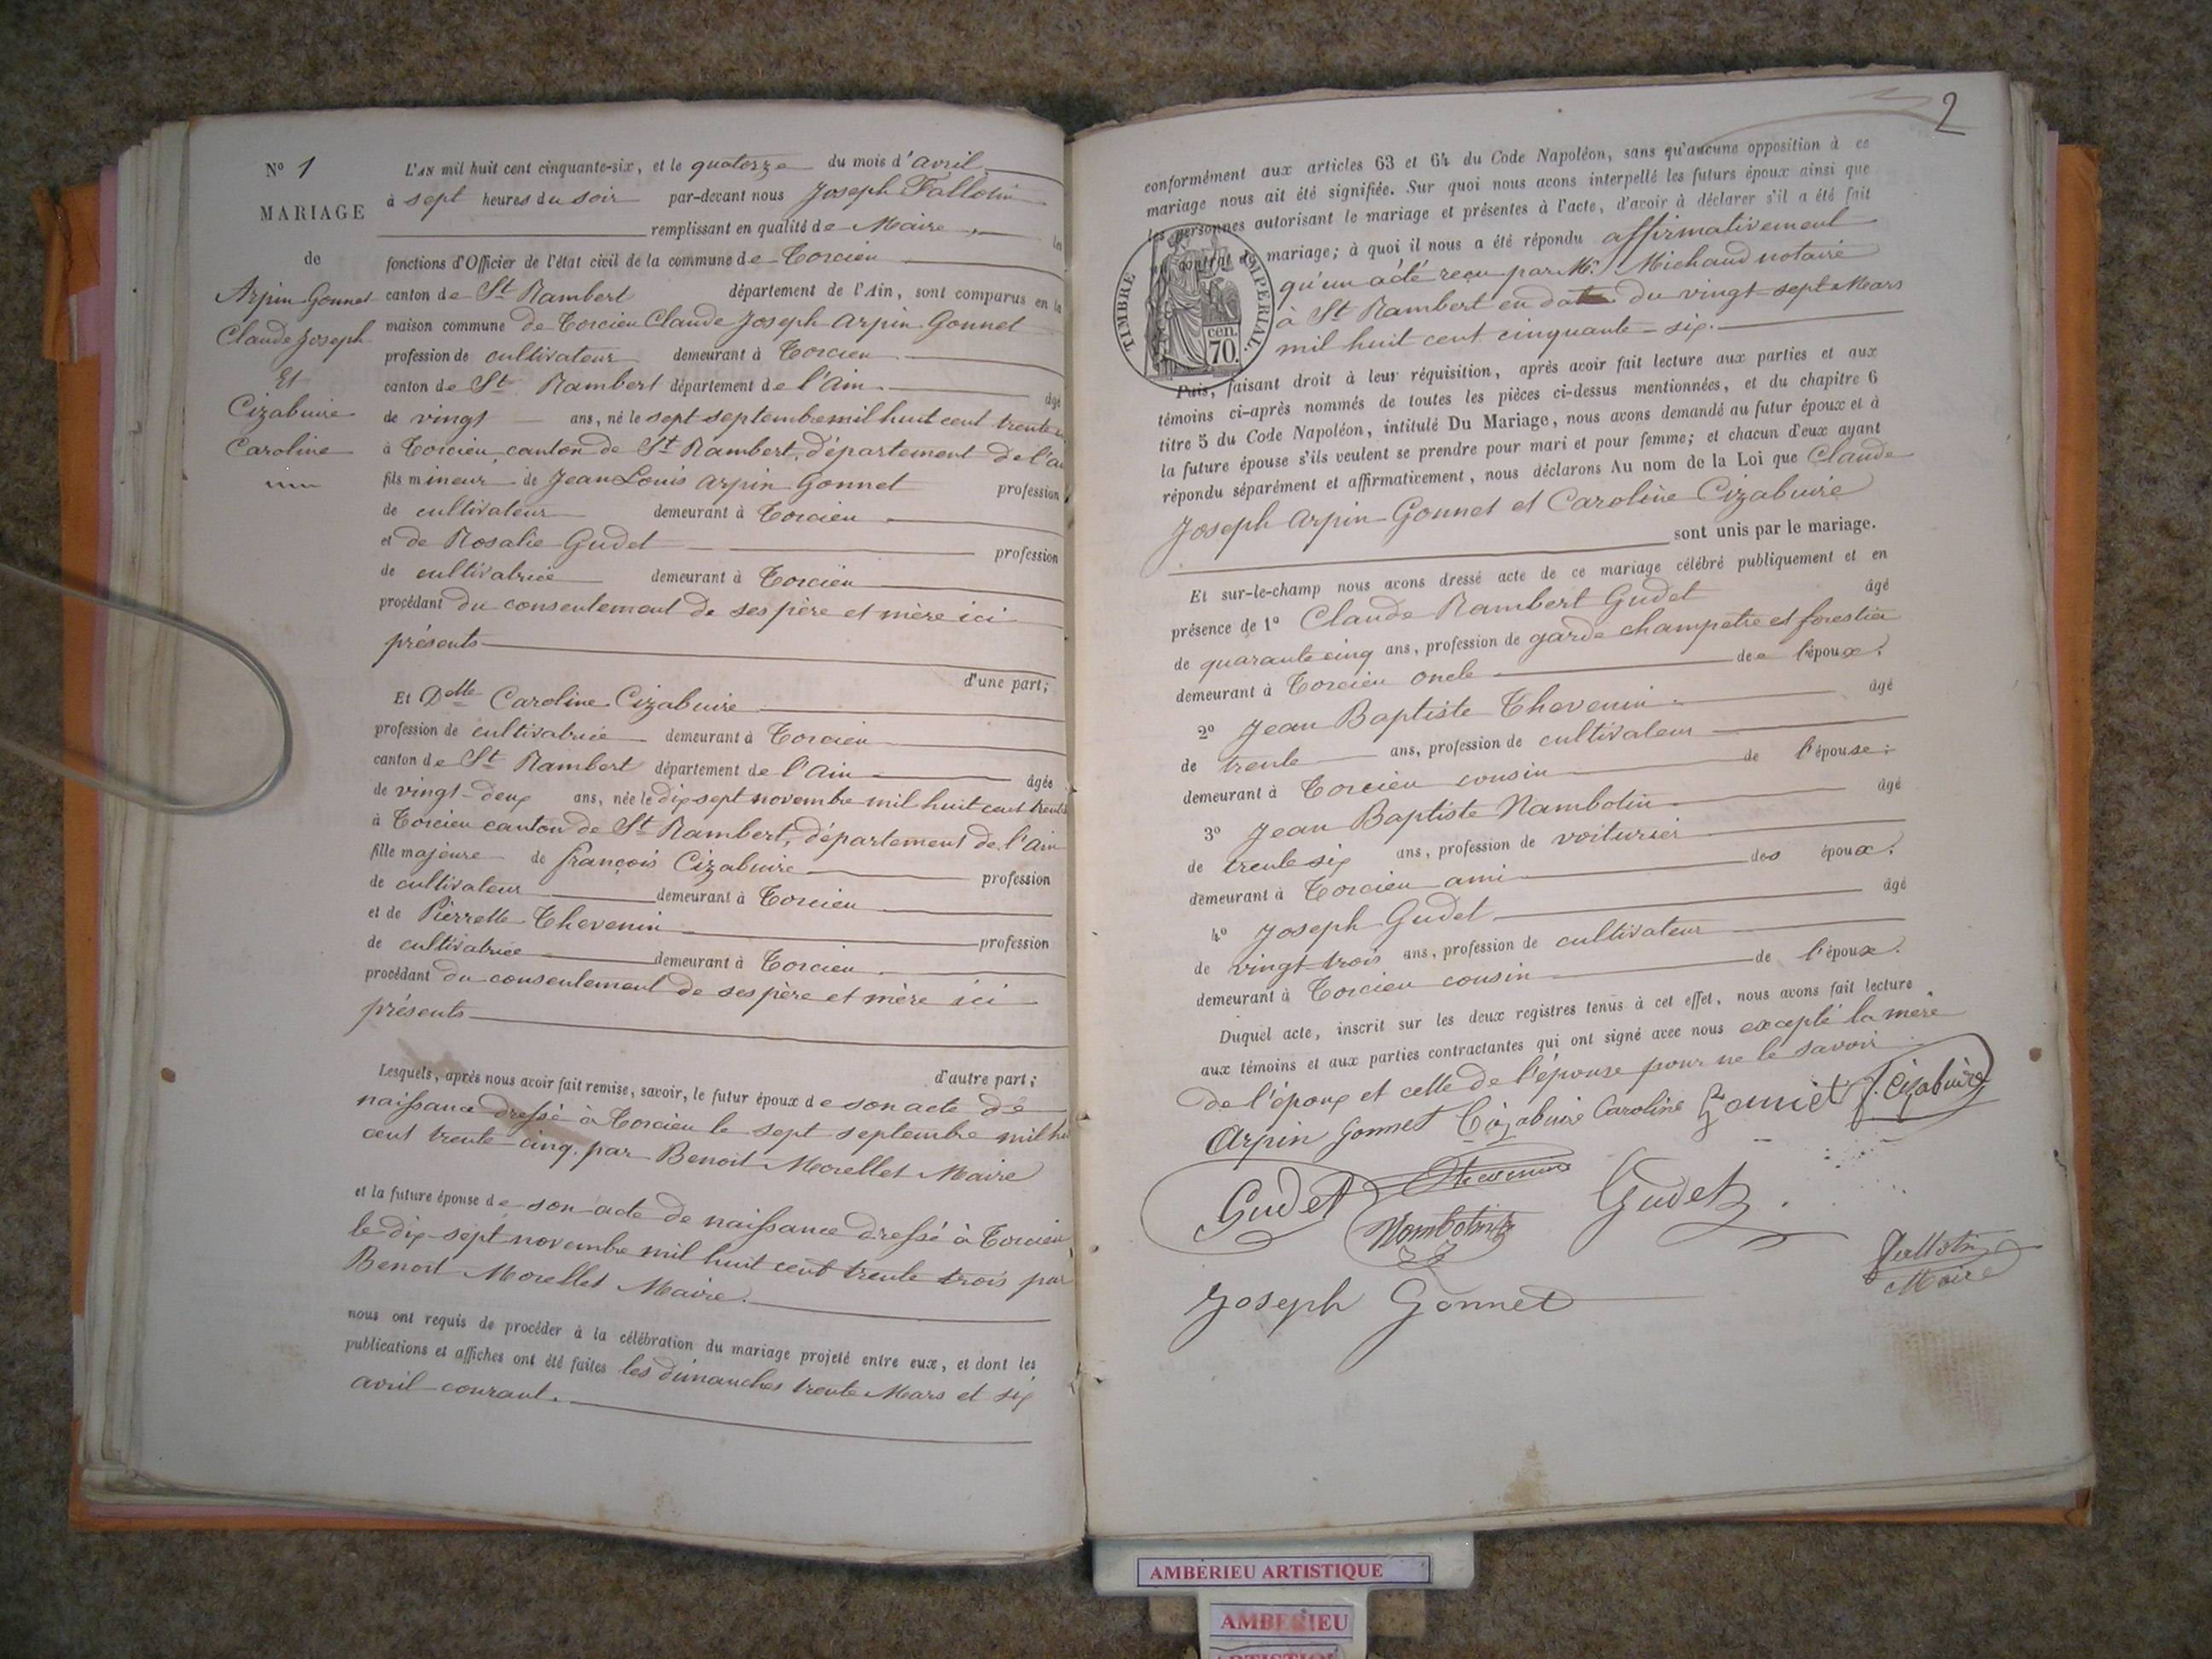 No 1
MARIAGE
de
Arpin-Gonnet
Claude Joseph
Et
Cizabuire
Caroline
L'AN mil huit cent cinquante-six, et le quatorze du mois d'avril
à sept heures du soir par-devant nous Joseph Fallotin
remplissant en qualité de Maire les
fonctions d'Officier de l'état civil de la commune de Torcieu
canton de St Rambert département de l'Ain, sont comparus en la
maison commune de Torcieu Claude Joseph Arpin-Gonnet
profession de cultivateur demeurant à Torcieu
canton de St Rambert département de l'Ain âgé
de vingt ans, né le sept septembre mil huit cent trente
à Torcieu canton de St Rambert, département de l'
fils mineur de Jean Louis Arpin Gonnet profession
de cultivateur demeurant à Torcieu
et de Rosalie Gudet profession
de cultivatrice demeurant à Torcieu
procédant du consentement de ses père et mère ici
présents
d'une part;
Et Delle Caroline Cizabuire
profession de cultivatrice demeurant à Torcieu
canton de St Rambert département de l'Ain âgée
de vingt-deux ans, née le dix sept novembre mil huit cent trente
à Torcieu canton de St Rambert, département de l'Ain
fille majeure de françois Cizabuire profession
de cultivateur demeurant à Torcieu
et de Pierrette Thevenin profession
de cultivatrice demeurant à Torcieu
procédant du consentement de ses père et mère ici
présents
d'autre part;
Lesquels, après nous avoir fait remise, savoir, le futur époux de son acte de
naissance dressé à Torcieu le sept septembre mil
cent trente-cinq par Benoit Morellet Maire
et la future épouse de son acte de naissance dressé à Torcieu
le dix-sept novembre mil huit cent trente trois par
Benoit Morellet Maire.
nous ont requis de procéder à la célébration du mariage projeté entre eux, et dont les
publications et affiches ont été faites les dimanches trente Mars et six
avril courant.
2
conformément aux articles 63 et 64 du Code Napoléon, sans qu'aucune opposition à ce
mariage nous ait été signifiée. Sur quoi nous avons interpellé les futurs époux ainsi que
les personnes autorisant le mariage et présentes à l'acte, d'avoir à déclarer s'il a été fait
un contrat de mariage; à quoi il nous a été répondu affirmativement
qu'un acte reçu par Me Michaud notaire
à St Rambert en date du vingt-sept Mars
mil huit cent cinquante-six.
TIMBRE IMPERIAL.
cen.
70.
Puis, faisant droit à leur réquisition, après avoir fait lecture aux parties et aux
témoins ci-après nommés de toutes les pièces ci-dessus mentionnées, et du chapitre 6
titre 5 du Code Napoléon, intitulé Du Mariage, nous avons demandé au futur époux et à
la future épouse s'ils veulent se prendre pour mari et pour femme; et chacun d'eux ayant
répondu séparément et affirmativement, nous déclarons Au nom de la Loi que Claude
Joseph Arpin-Gonnet et Caroline Cizabuire
sont unis par le mariage.
Et sur-le-champ nous avons dressé acte de ce mariage célébré publiquement et en
présence de 1o Claude Rambert Gudet âgé
de quarante cinq ans, profession de garde champetre et forestier
demeurant à Torcieu oncle de l'époux.
2o Jean Baptiste Thevenin âgé
de trente ans, profession de cultivateur
demeurant à Torcieu cousin de l'épouse;
3o Jean Baptiste Nambotin âgé
de trente six ans, profession de voiturier
demeurant à Torcieu ami des époux.
4o Joseph Gudet âgé
de vingt-trois ans, profession de cultivateur
demeurant à Torcieu cousin de l'époux.
Duquel acte, inscrit sur les deux registres tenus à cet effet, nous avons fait lecture
aux témoins et aux parties contractantes qui ont signé avec nous excepté la mère
de l'époux et celle de l'épouse pour ne le savoir
Arpin Gonnet Cizabuire Caroline f. Cizabuire
Gudet Thevenin Gudet
Nambotin
Fallotin
Maire
Joseph Gonnet
AMBERIEU ARTISTIQUE
AMBERIEU
ARTISTIQUE